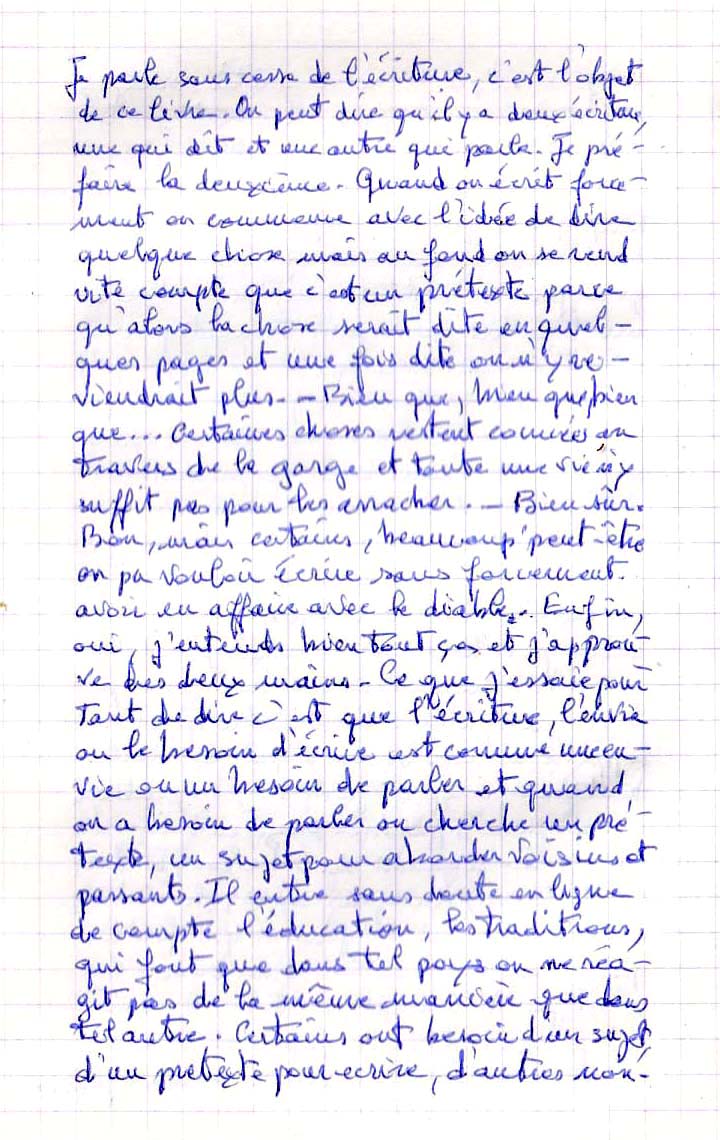 Je parle sans cesse de l'écriture, c'est l'objet
de ce livre. On peut dire qu'il y a deux écritures,
une qui dit et une autre qui parle. Je pré-
faire la deuxième. Quand on écrit force-
ment on commence avec l'idée de dire
quelque chose mais au fond on se rend
vite compte que c'est un prétexte parce
qu'alors la chose serait dite en quel-
ques pages et une fois dite on n'y re-
viendrait plus. - Bien que, bien que, bien
que... Certaines choses restent coincées en
travers de la gorge et toute une vie n'y
suffit pas pour les arracher. - Bien sûr.
Bon, mais certains, beaucoup peut-être
on pu vouloir écrire sans forcement
avoir eu affaire avec le diable. Enfin,
oui, j'entends bien tout ça et j'approu-
ve des deux mains. Ce que j'essaie pour
tant de dire c'est que l'écriture, l'envie
ou le besoin d'écrire est comme une en-
vie ou un besoin de parler et quand
on a besoin de parler on cherche un pré-
texte, un sujet pour aborder voisins et
passants. Il entre sans doute en ligne
de compte l'éducation, les traditions,
qui font que dans tel pays on ne réa-
git pas de la même manière que dans
tel autre. Certains ont besoin d'un sujet,
d'un prétexte pour ecrire, d'autres non.